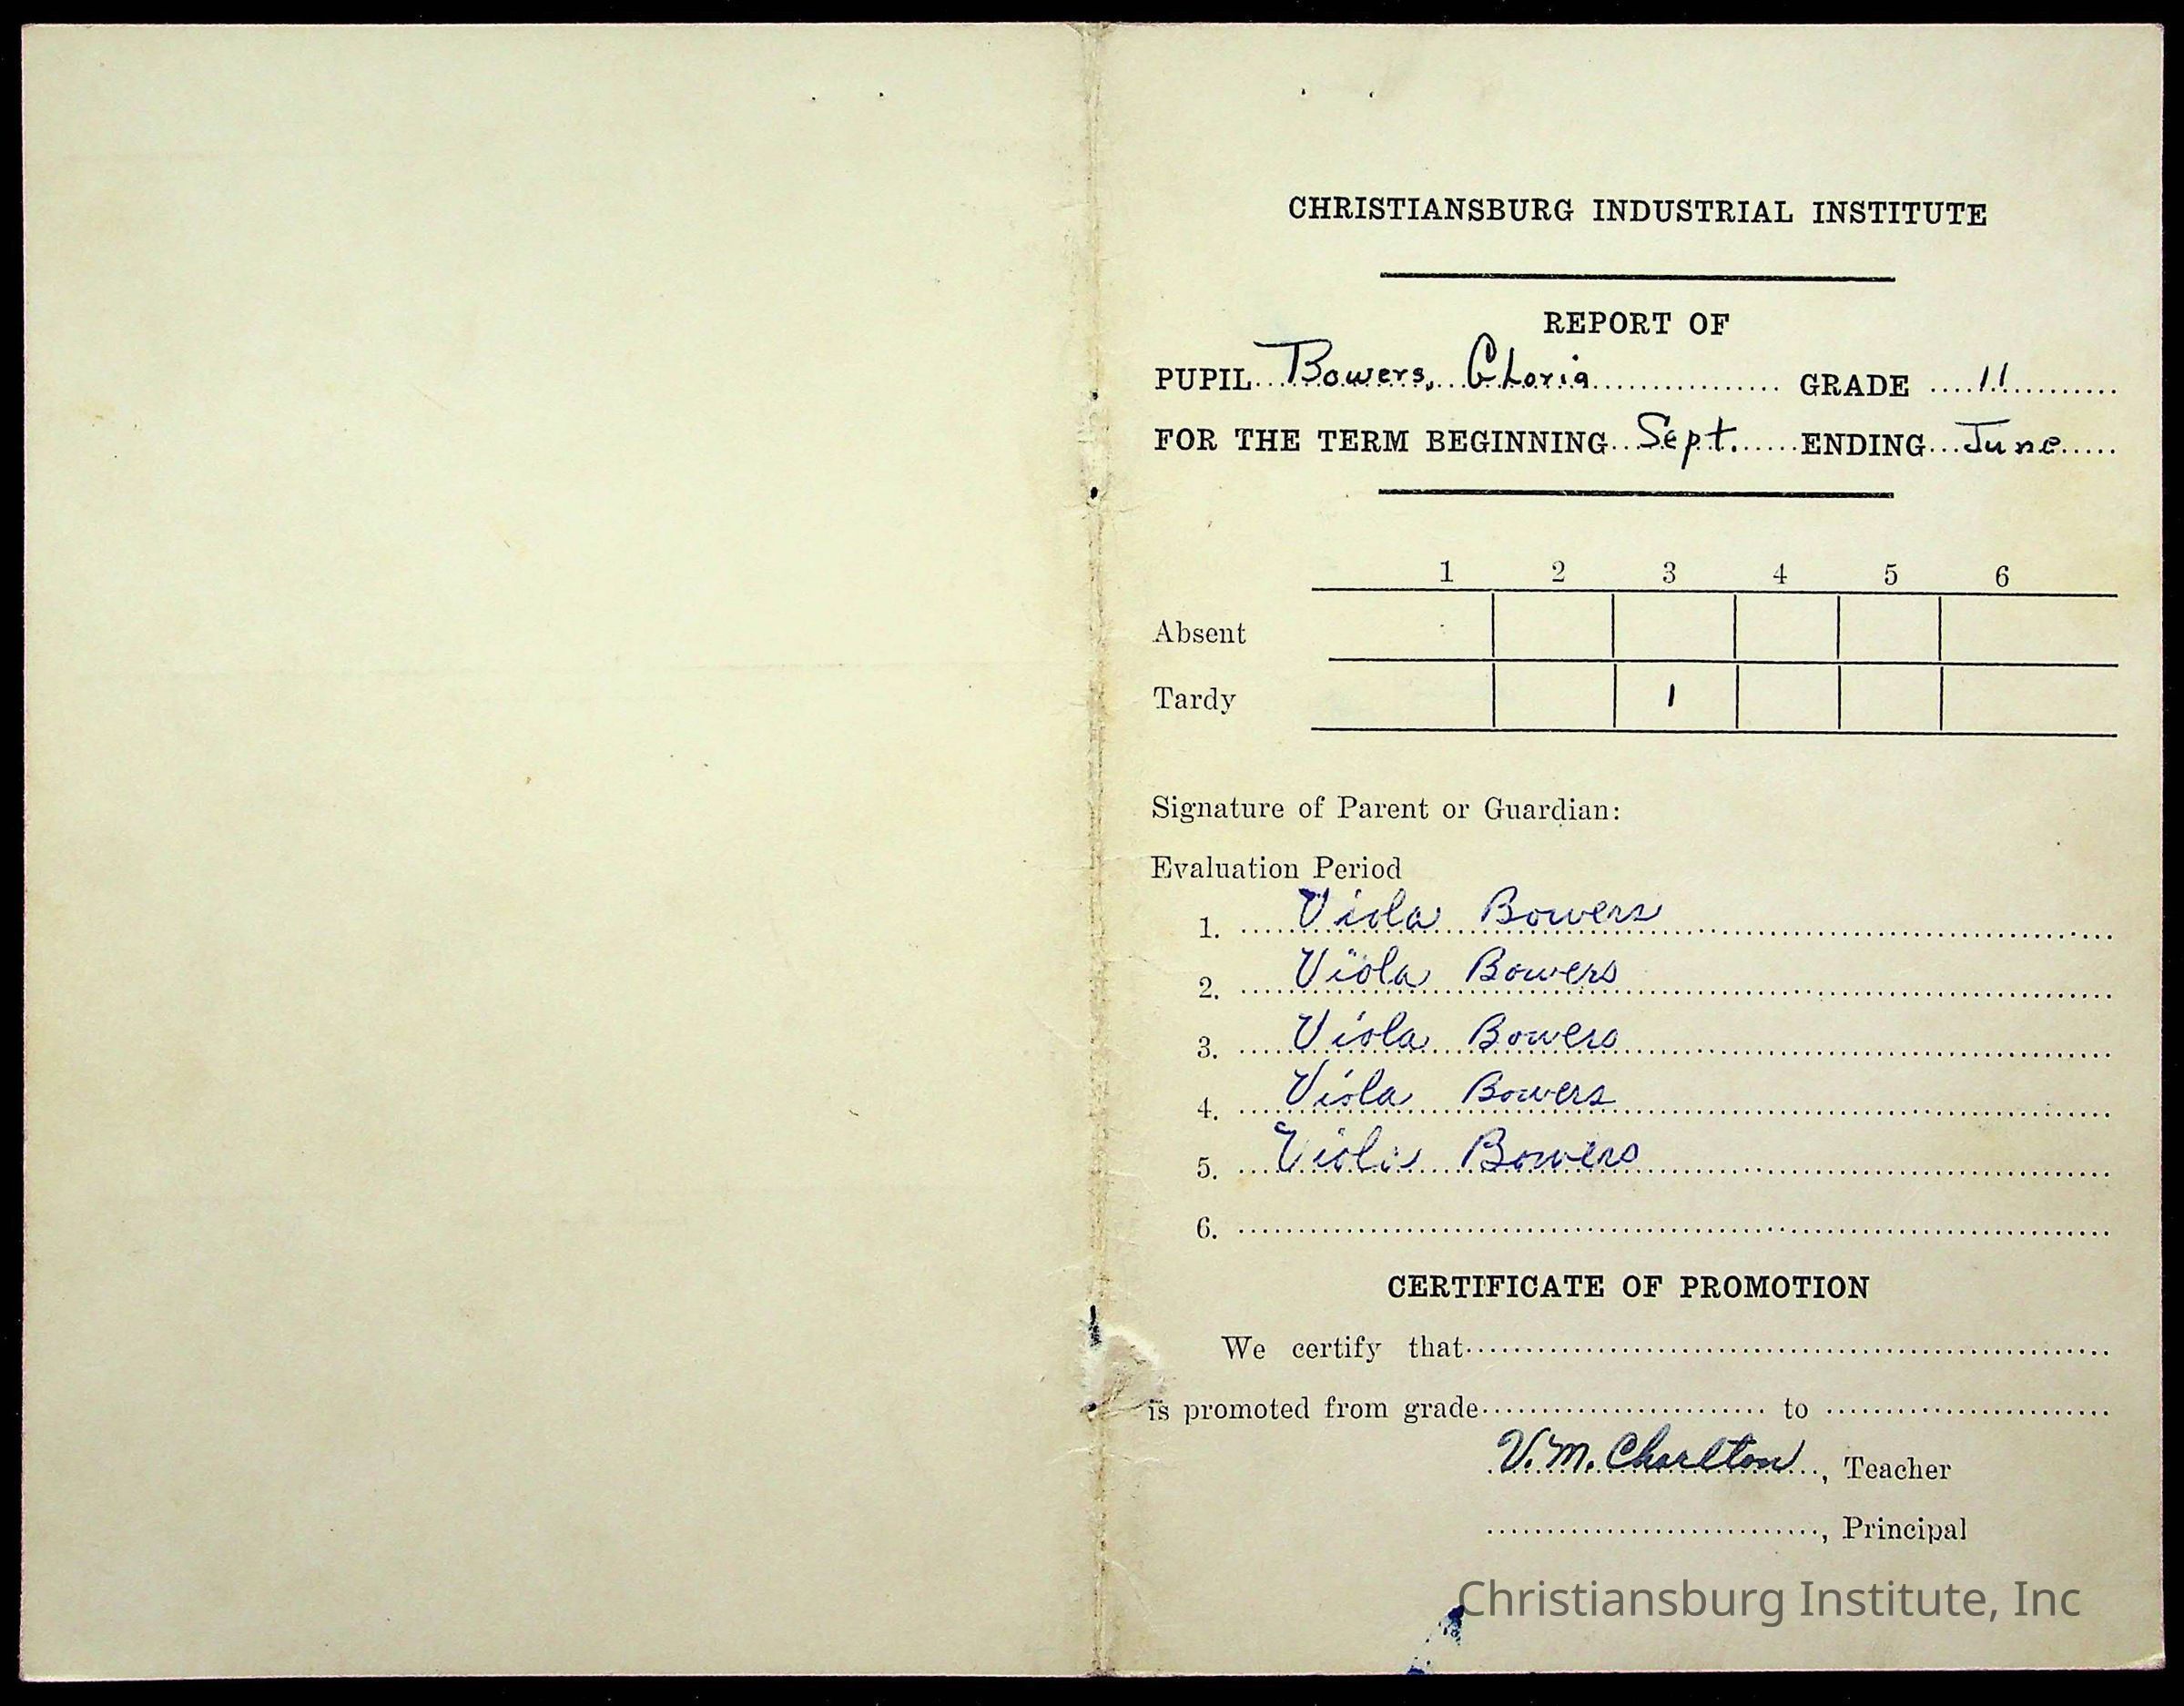 CHRISTIANSBURG INDUSTRIAL INSTITUTE
REPORT OF
PUPIL Bowers, Gloria GRADE 11
FOR THE TERM BEGINNING Sept. ENDING June
1 2 3 4 5 6
Absent
Tardy 1
Signature of Parent or Guardian:
Evaluation Period
1. Viola Bowers
2. Viola Bowers
3. Viola Bowers
4. Viola Bowers
5. Viola Bowers
6.
CERTIFICATE OF PROMOTION
We certify that
is promoted from grade to
V. M. Charlton, Teacher
, Principal
Christiansburg Institute, Inc